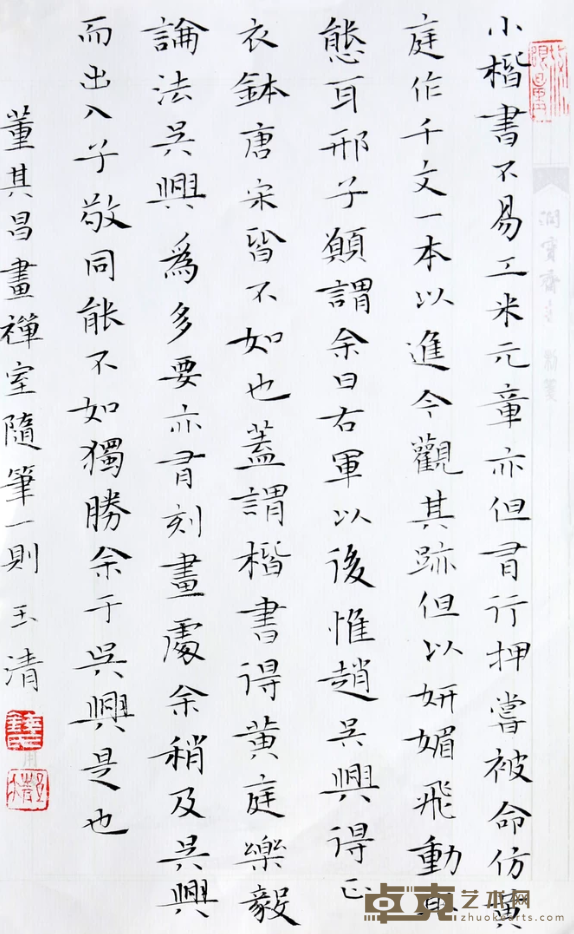 小楷書不易工米元章亦但有行押嘗被命仿黃
庭作千文一本以進今觀其跡但以妍媚飛動取
態耳邢子願謂余曰右軍以後惟趙吳興得正
衣鉢唐宋皆不如也蓋謂楷書得黃庭樂毅
論法吳興為多要亦有刻畫處余稍及吳興
而出入子敬同能不如獨勝余于吳興是也
董其昌畫禪室隨筆一則 玉清
卓克艺术网
www.zhuokearts.com